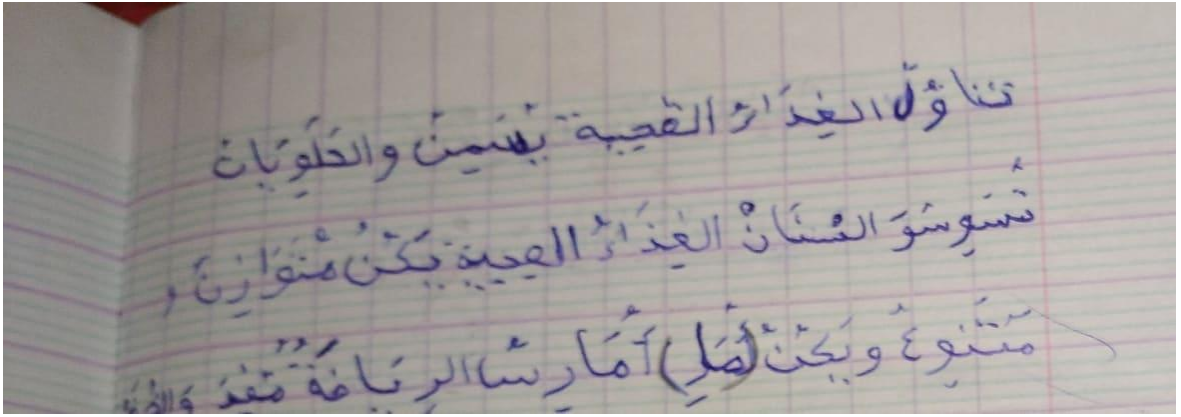 تناوُلّ الغِذَائ الصحيية يُسَمِينُ والحَلَوِيَات
تُسَوِسُوَ السنَانْ الغِذَائُ الصحيية يَكُنُ مُتَوَازِنَ و
مُتَنَوِعُ ويَجْنُ (أُصَلِي) أُمَارِسُ الرِيَاضَةُ مُفِيدَ